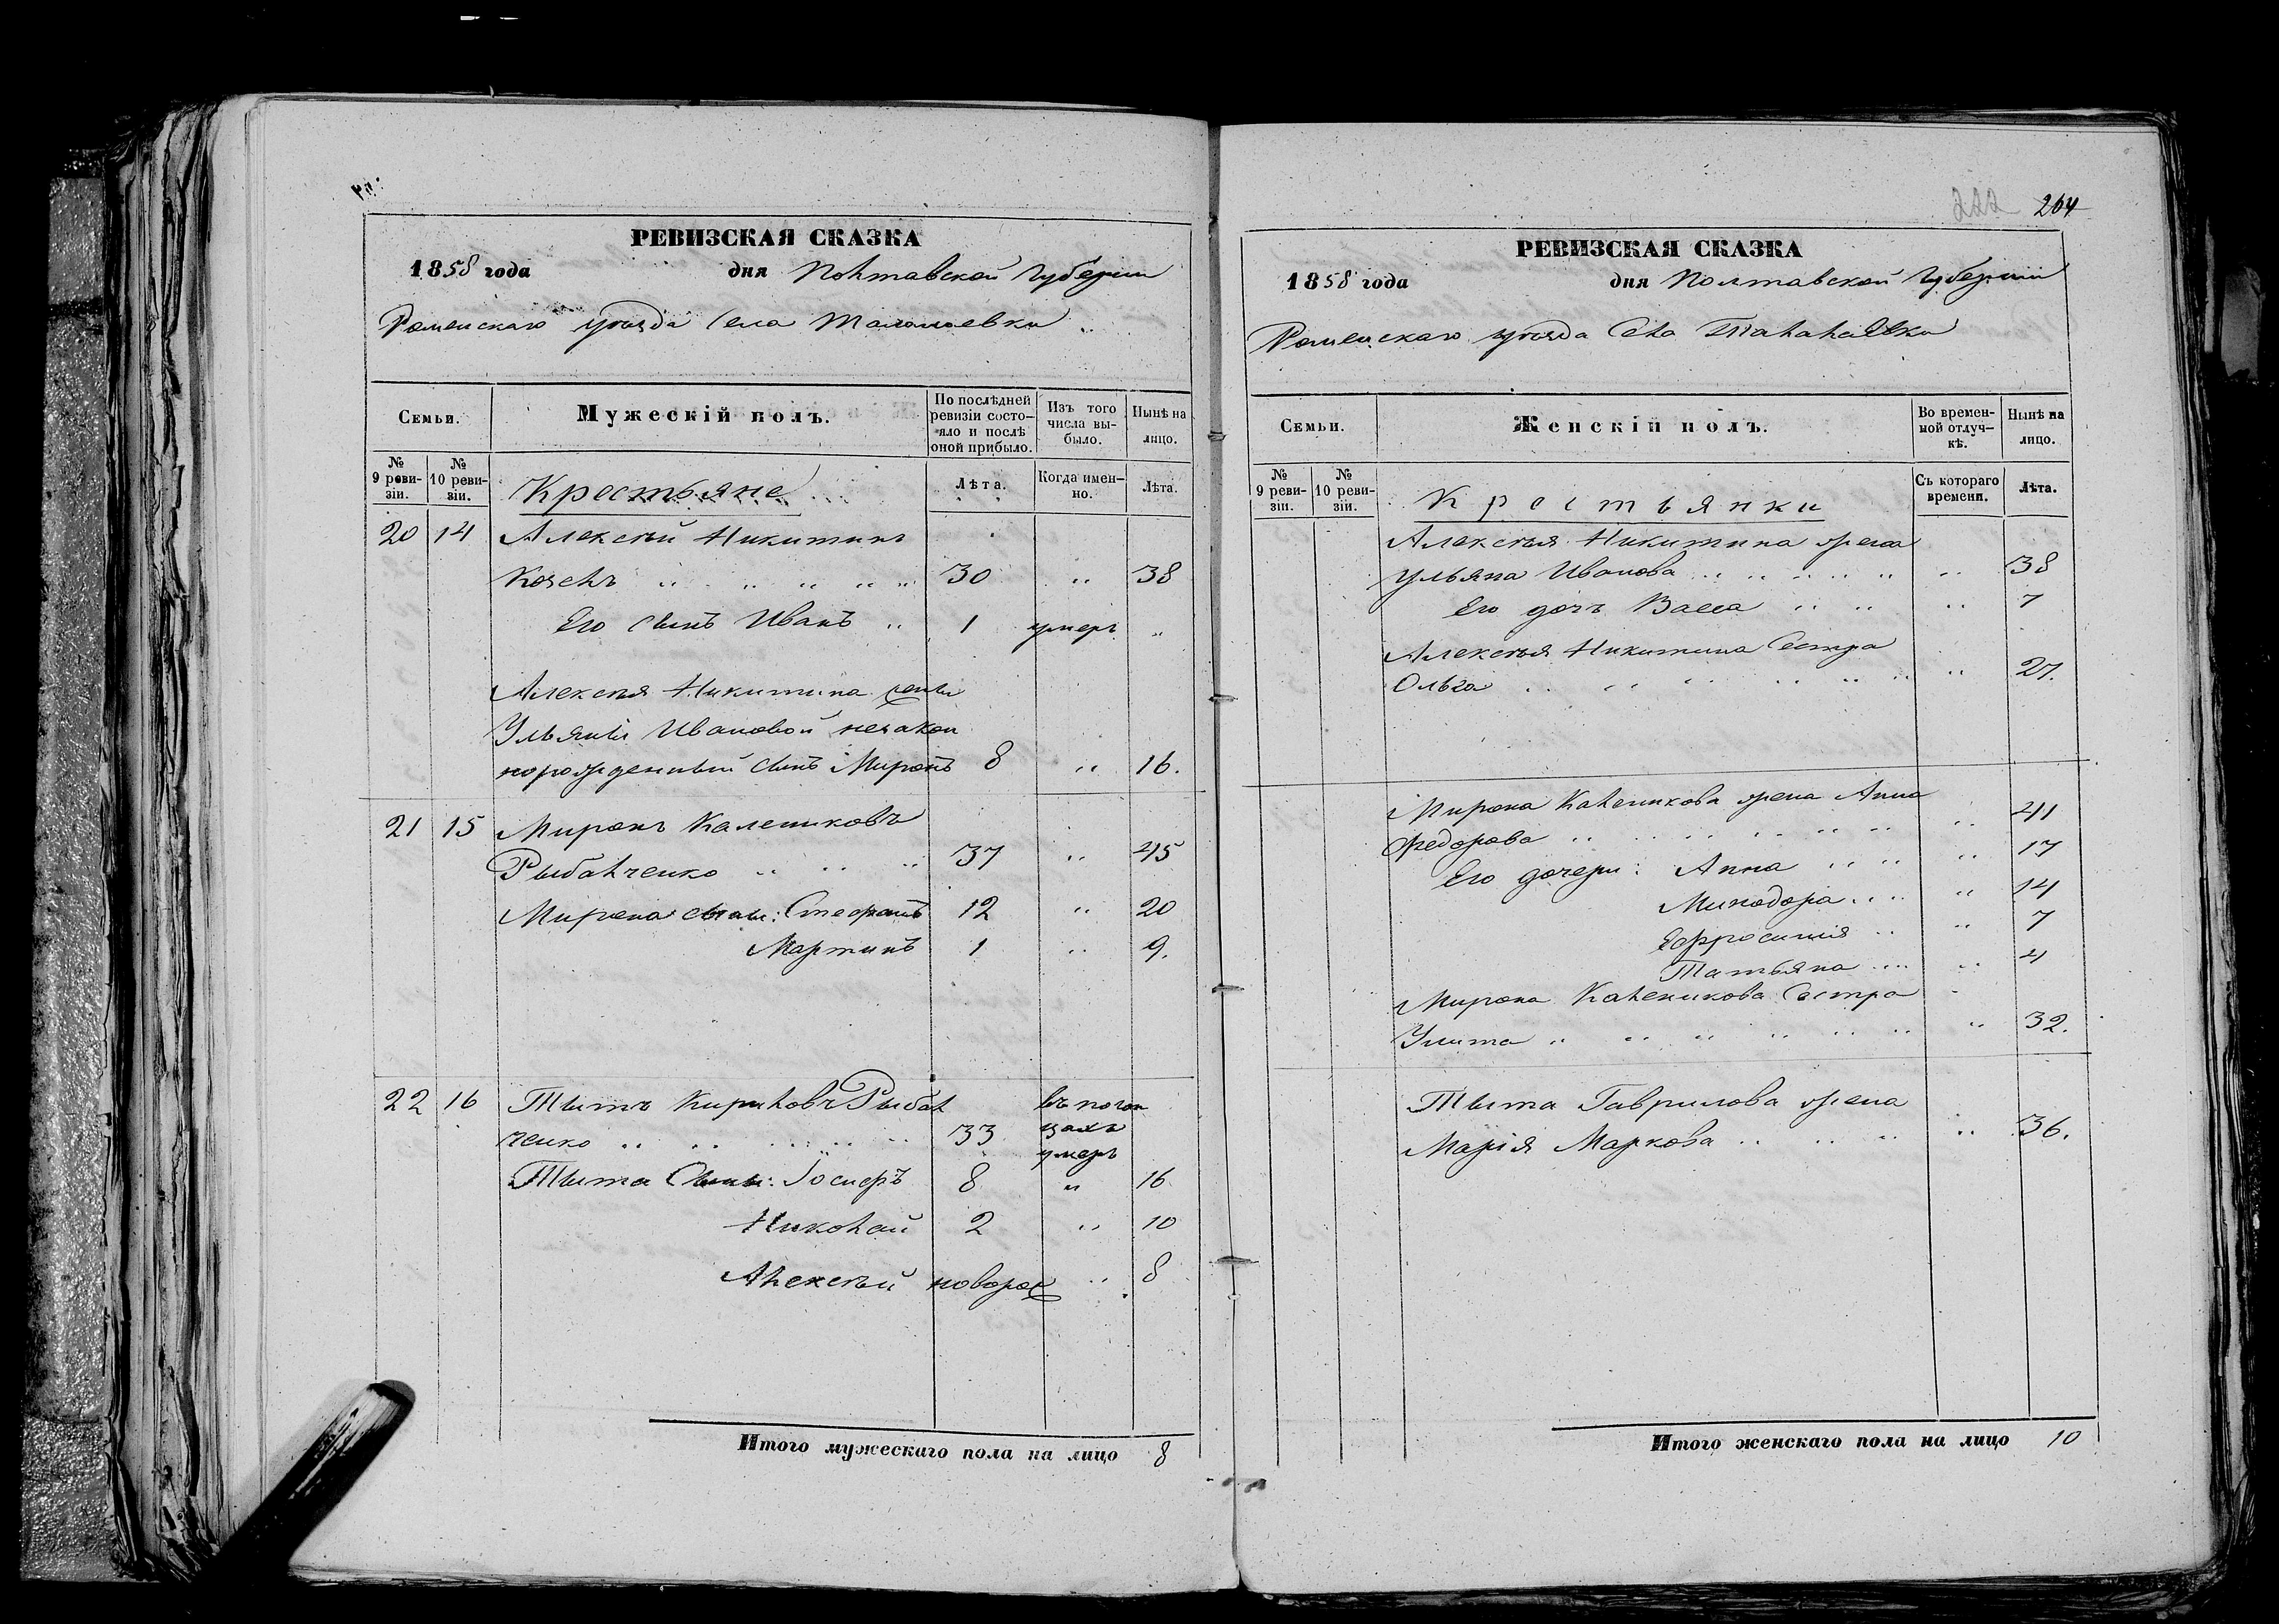 РЕВИЗСКАЯ СКАЗКА
1858 года дня Полтавской Губернии
Роменскаго уѣзда Села Талалаевки
Семьи.
Мужескій полъ.
По послѣдней ревизіи состояло и послѣ оной прибыло.
Изъ того числа выбыло.
Нынѣ на лицо.
№ 9 ревизіи.
№ 10 ревизіи.
Лѣта.
Когда именно.
Лѣта.
Крестьяне
20 14 Алексѣй Никитинъ
30 " 38
Его сынъ Иванъ " 1 умеръ "
Алексѣя Никитина жены
Ульяны Ивановой незакон
норожденный сынъ Миронъ 8 " 16.
21 15 Миронъ Калениковъ
Рыбалченко " " " 37 " 45
Мирона сыны: Стефанъ 12 " 20
Мартинъ 1 " 9.
22 16 Титъ Кириловъ Рыбал
ченко " " " " " 33 умеръ
Тита Сыны: Іосифъ 8 " 16
Николай 2 " 10
Алексѣй новорож " 8
Итого мужескаго пола на лицо 8
222 264
РЕВИЗСКАЯ СКАЗКА
1858 года дня Полтавской Губерніи
Роменскаго уѣзда Села Талалаевки
Семьи.
Женскій полъ.
Во временной отлучкѣ.
Нынѣ на лицо.
№ 9 ревизіи.
№ 10 ревизіи.
Съ котораго времени.
Лѣта.
Крестьянки
Алексѣя Никитина жена
Ульяна Иванова " " " " " " 38
Его дочь Васса " " " 7
Алексѣя Никитина Сестра
Ольга " " " " " " " 27.
Мирона Каленикова жена Анна
Федорова " " " " " " " " 41
Его дочери: Анна " " " 17
Минодора " " " 14
Ефросинія " " 7
Татьяна " " " 4
Мирона Каленикова Сестра
Улита " " " " " " " 32.
Тита Гаврилова жена
Марія Маркова " " " " 36.
Итого женскаго пола на лицо 10